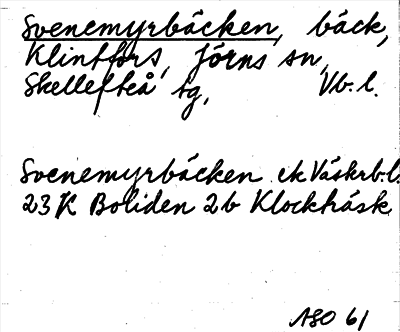 Svenemyrbäcken, bäck,
Klintfors, Jörns sn,
Skellefteå tg, Vb. l.
Svenemyrbäcken ek Väskrb.l.
23 K Boliden 2b Klockträsk
ASO 61